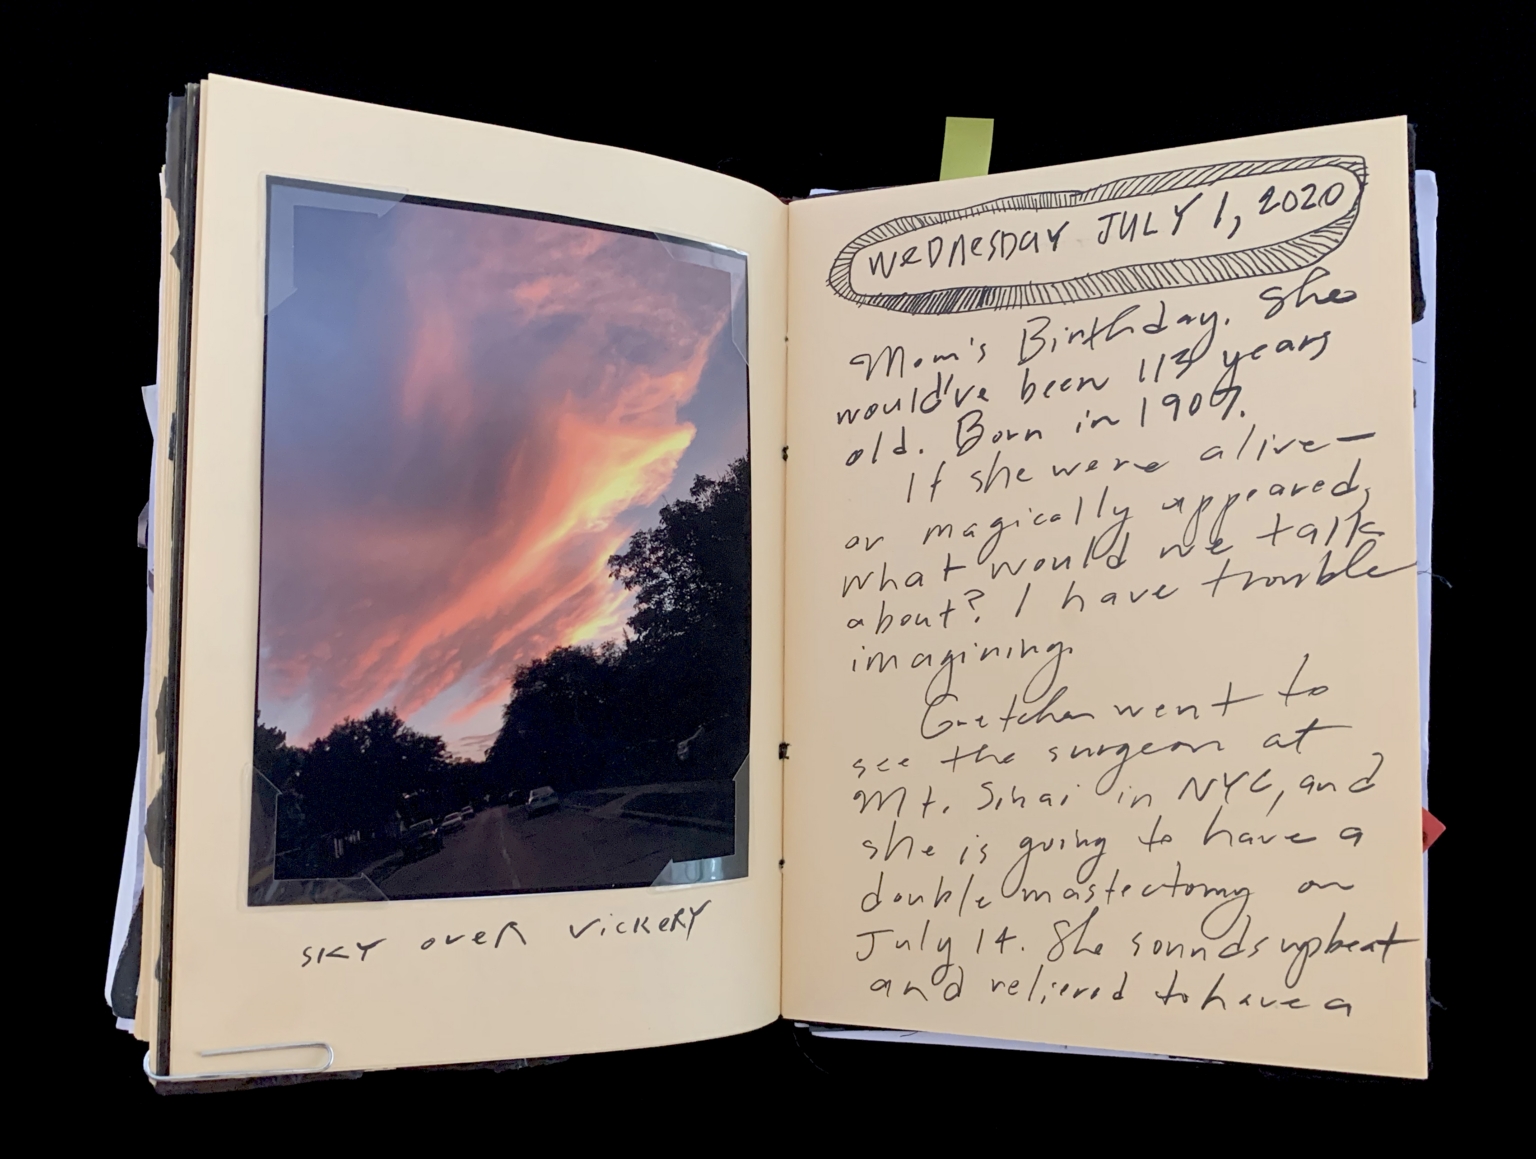 SKY OVER VICKERY
WEDNESDAY JULY 1, 2020
Mom's Birthday. She
would've been 113 years
old. Born in 1907.
If she were alive—
or magically appeared,
what would we talk
about? I have trouble
imagining.
Gretchen went to
see the surgeon at
Mt. Sinai in NYC, and
she is going to have a
double mastectomy on
July 14. She sounds upbeat
and relieved to have a